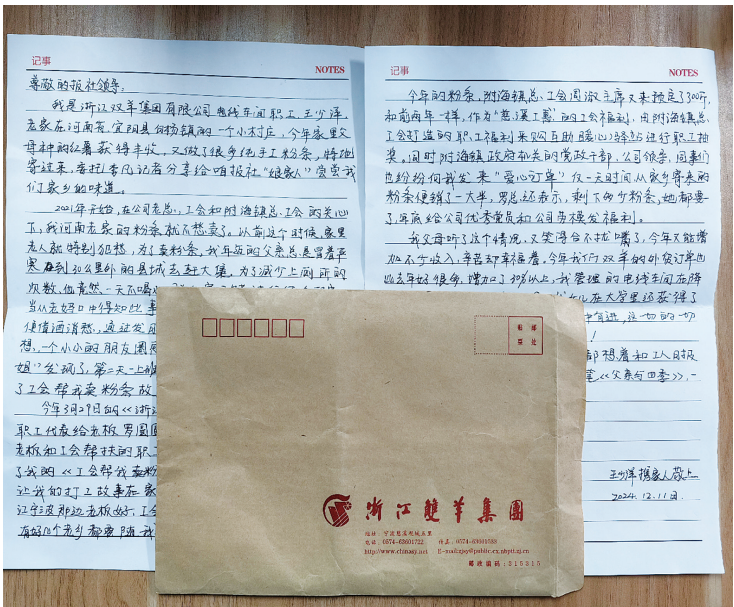 记事 NOTES
尊敬的报社领导:
我是浙江双羊集团有限公司电线车间职工王少洋,
老家在河南省宜阳县杨镇的一个小村庄,今年家里父
母种的红薯获得丰收,又做了很多纯手工粉条,特地
寄过来,委托李凡记者分享给咱报社“娘家人”尝尝我
们家乡的味道。
2021年开始,在公司老总、工会和附海镇总工会的关心
下,我河南老家的粉条就不愁卖了。以前这个时候,家里
老人就特别犯愁,为了卖粉条,我年迈的父亲总是冒着严
寒到30公里外的县城去赶大集。为了减少上厕所的
次数,他竟然一天不喝
当从口中得知此事
借酒消愁,通过发
想,一个小小的朋友圈
姐”发现了,第二天一上班
了工会帮我卖粉条故
今年3月29日的《浙江
职工代表给老板罗国
老板和工会帮扶的职工
了我的《工会帮我卖粉
让我的打工故事在家
江宁波那边老板好、工会
有好几个老乡都要随我
记事 NOTES
今年的粉条,附海镇总工会周淑主席又来预定了300斤,
和前两年一样,作为“慈溪工惠”的工会福利,由附海镇总
工会打造的职工福利采购互助暖心驿站进行职工抽
奖。同时附海镇政府机关的党政干部、公司领导、同事们
也纷纷向我发来“爱心订单”仅一天时间从家乡寄来的
粉条便销了一大半,罗总还表示,剩下多少粉条,她都要
了,年底给公司优秀党员和公司劳模发福利。
我父母听了这个情况,又笑得合不拢嘴了,今年又能增
加不少收入,辛苦却幸福着,今年我们双羊的外贸订单也
比去年好很多,增加了10%以上,我管理的电线车间在降
女儿在大学里还获得了
这一切的一切
!
都想着和工人日报
《父亲与四季》,一
王少洋携家人敬上
2024.12.11日.
邮票
贴处
浙江雙羊集團
地址:宁波慈溪附城五里
电话:0574-63601722 传真:0574-63601588
http://www.chinasy.net E-mail:zjsy@public.cx.nbptt.zj.cn
邮政编码:315315